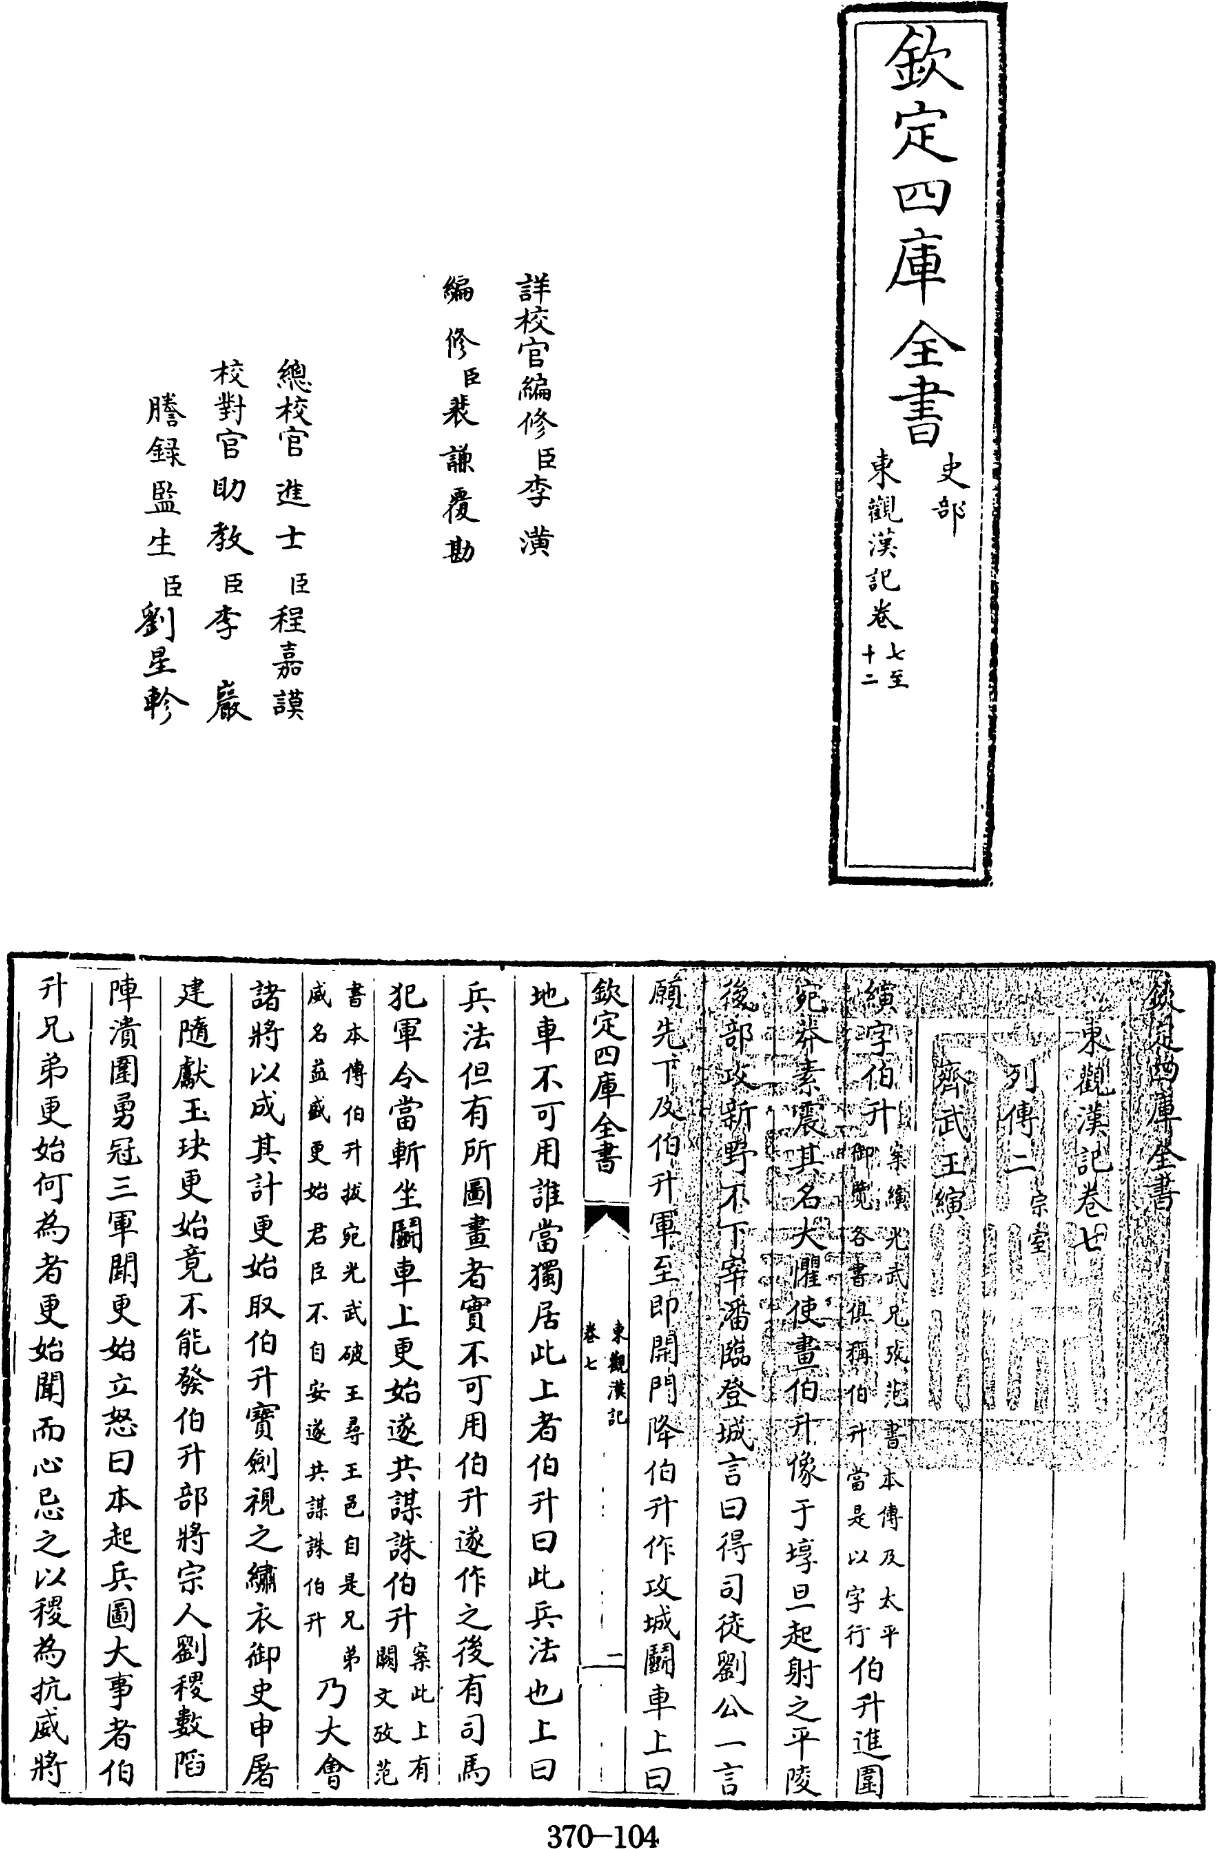 欽定四庫全書
史部
東觀漢記卷七至十二
詳校官編修臣李潢
編修臣裴謙覆勘
總校官進士臣程嘉謨
校對官助教臣李巖
謄錄監生臣劉星軫
欽定四庫全書
東觀漢記卷七
列傳二宗室
齊武王縯
縯字伯升案縯光武兄攷范書本傳及太平御覽各書俱稱伯升當是以字行伯升進圍
宛莽素震其名大懼使畫伯升像于埻旦起射之平陵
後部攻新野不下宰潘臨登城言曰得司徒劉公一言
願先下及伯升軍至即開門降伯升作攻城鬭車上曰
欽定四庫全書
東觀漢記
卷七
二
地車不可用誰當獨居此上者伯升曰此兵法也上曰
兵法但有所圖畫者實不可用伯升遂作之後有司馬
犯軍令當斬坐鬭車上更始遂共謀誅伯升案此上有闕文攷范
書本傳伯升拔宛光武破王尋王邑自是兄弟威名益盛更始君臣不自安遂共謀誅伯升乃大會
諸將以成其計更始取伯升寶劍視之繡衣御史申屠
建隨獻玉玦更始竟不能發伯升部將宗人劉稷數陷
陣潰圍勇冠三軍聞更始立怒曰本起兵圖大事者伯
升兄弟更始何為者更始聞而心忌之以稷為抗威將
370-104